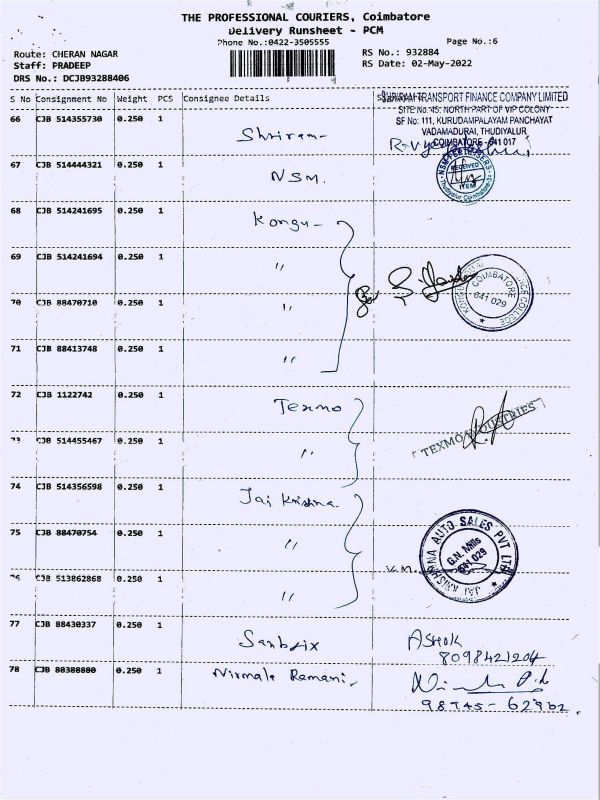 THE PROFESSIONAL COURIERS, Coimbatore
Delivery Runsheet - PCM
Phone No.:0422-3505555
Page No.:6
Route: CHERAN NAGAR
RS No.: 932884
Staff: PRADEEP
RS Date: 02-May-2022
DRS No.: DCJB93288406
S No Consignment No Weight PCS Consignee Details
SHRIRAM TRANSPORT FINANCE COMPANY LIMITED
SITE No.45, NORTH PART OF VIP COLONY
SF No: 111, KURUDAMPALAYAM PANCHAYAT
VADAMADURAI, THUDIYALUR
COIMBATORE - 641 017
66 CJB 514355730 0.250 1 Shriram-
67 CJB 514444321 0.250 1 NSM.
RECEIVED
68 CJB 514241695 0.250 1 Kongu -
69 CJB 514241694 0.250 1 "
COIMBATORE
641 029
70 CJB 88470710 0.250 1 "
71 CJB 88413748 0.250 1 "
72 CJB 1122742 0.250 1 Texmo
TEXMO INDUSTRIES
73 CJB 514455467 0.250 1 "
74 CJB 514356598 0.250 1 Jai Krishna.
JAI KRISHNA AUTO SALES PVT LTD
G.N. Mills
641 029
75 CJB 88470754 0.250 1 "
V.M.
76 CJB 513862868 0.250 1 "
77 CJB 88430337 0.250 1 Sanbrix ASHOK
8098421204
78 CJB 88388880 0.250 1 Nirmala Ramani.
98745-62902.